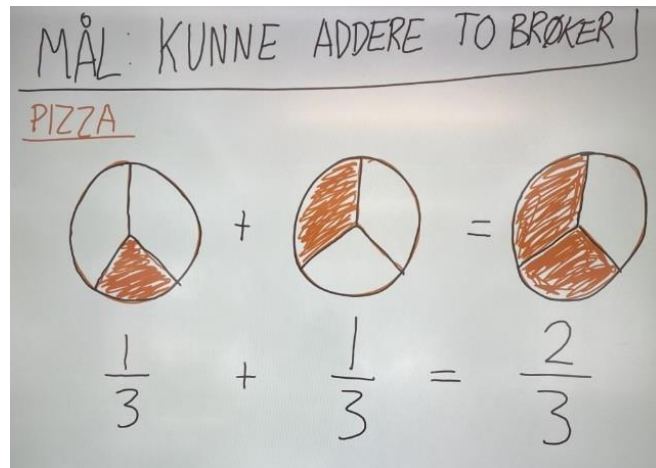 MÅL: KUNNE ADDERE TO BRØKER
PIZZA
+ =
1/3 + 1/3 = 2/3